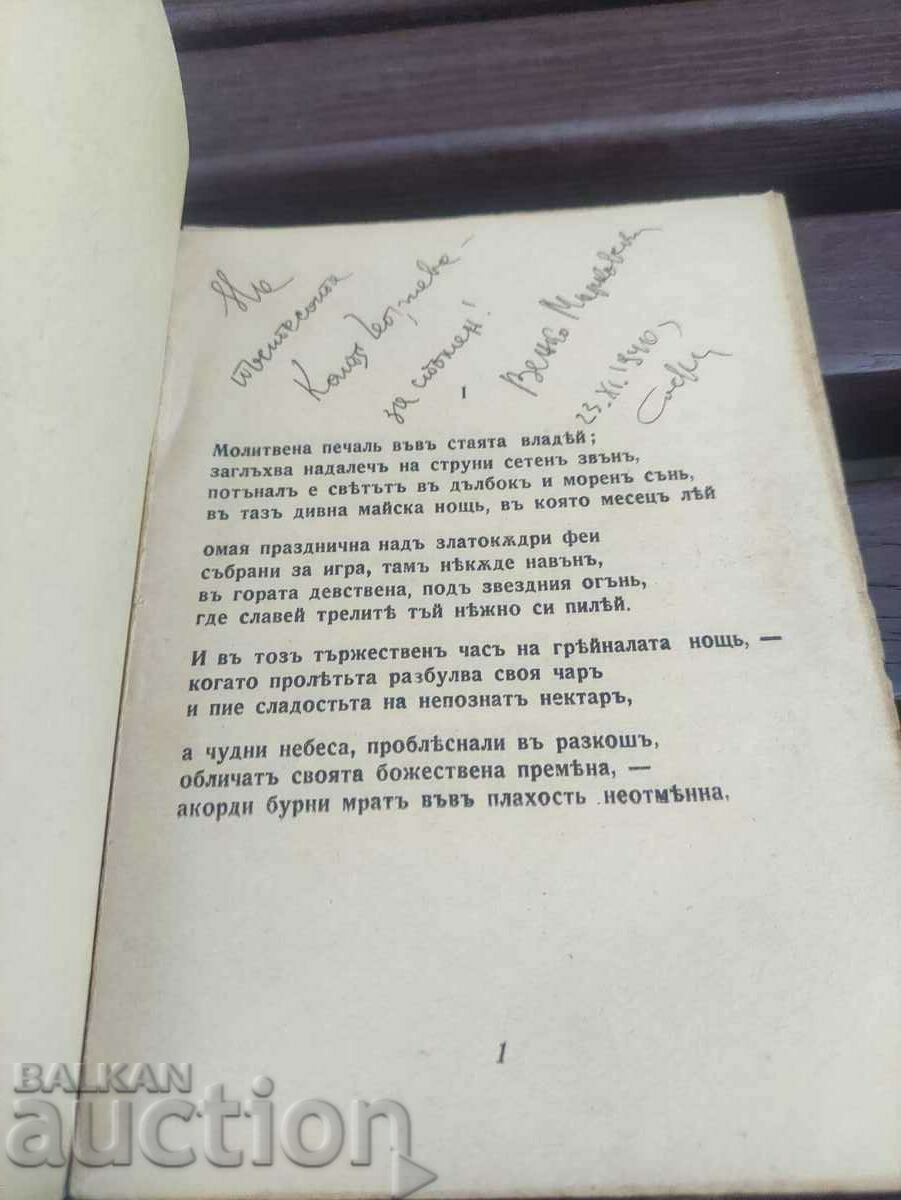 На
поетесата
за спомен!
Венко Марковски
23.XI.1940,
София
1
Молитвена печаль въвъ стаята владѣй;
заглъхва надалечъ на струни сетенъ звънъ,
потъналъ е свѣтътъ въ дълбокъ и моренъ сънь,
въ тазъ дивна майска нощь, въ която месецъ лѣй
омая празднична надъ златокѫдри феи
събрани за игра, тамъ нѣкѫде навънъ,
въ гората девствена, подъ звездния огънь,
где славей трелитѣ тъй нѣжно си пилѣй.
И въ тозъ тържественъ часъ на грѣйналата нощь, —
когато пролѣтьта разбулва своя чаръ
и пие сладостьта на непознатъ нектаръ,
а чудни небеса, проблѣснали въ разкошъ,
обличатъ своята божествена премѣна, —
акорди бурни мратъ въвъ плахость неотмѣнна.
1
BALKAN
auction